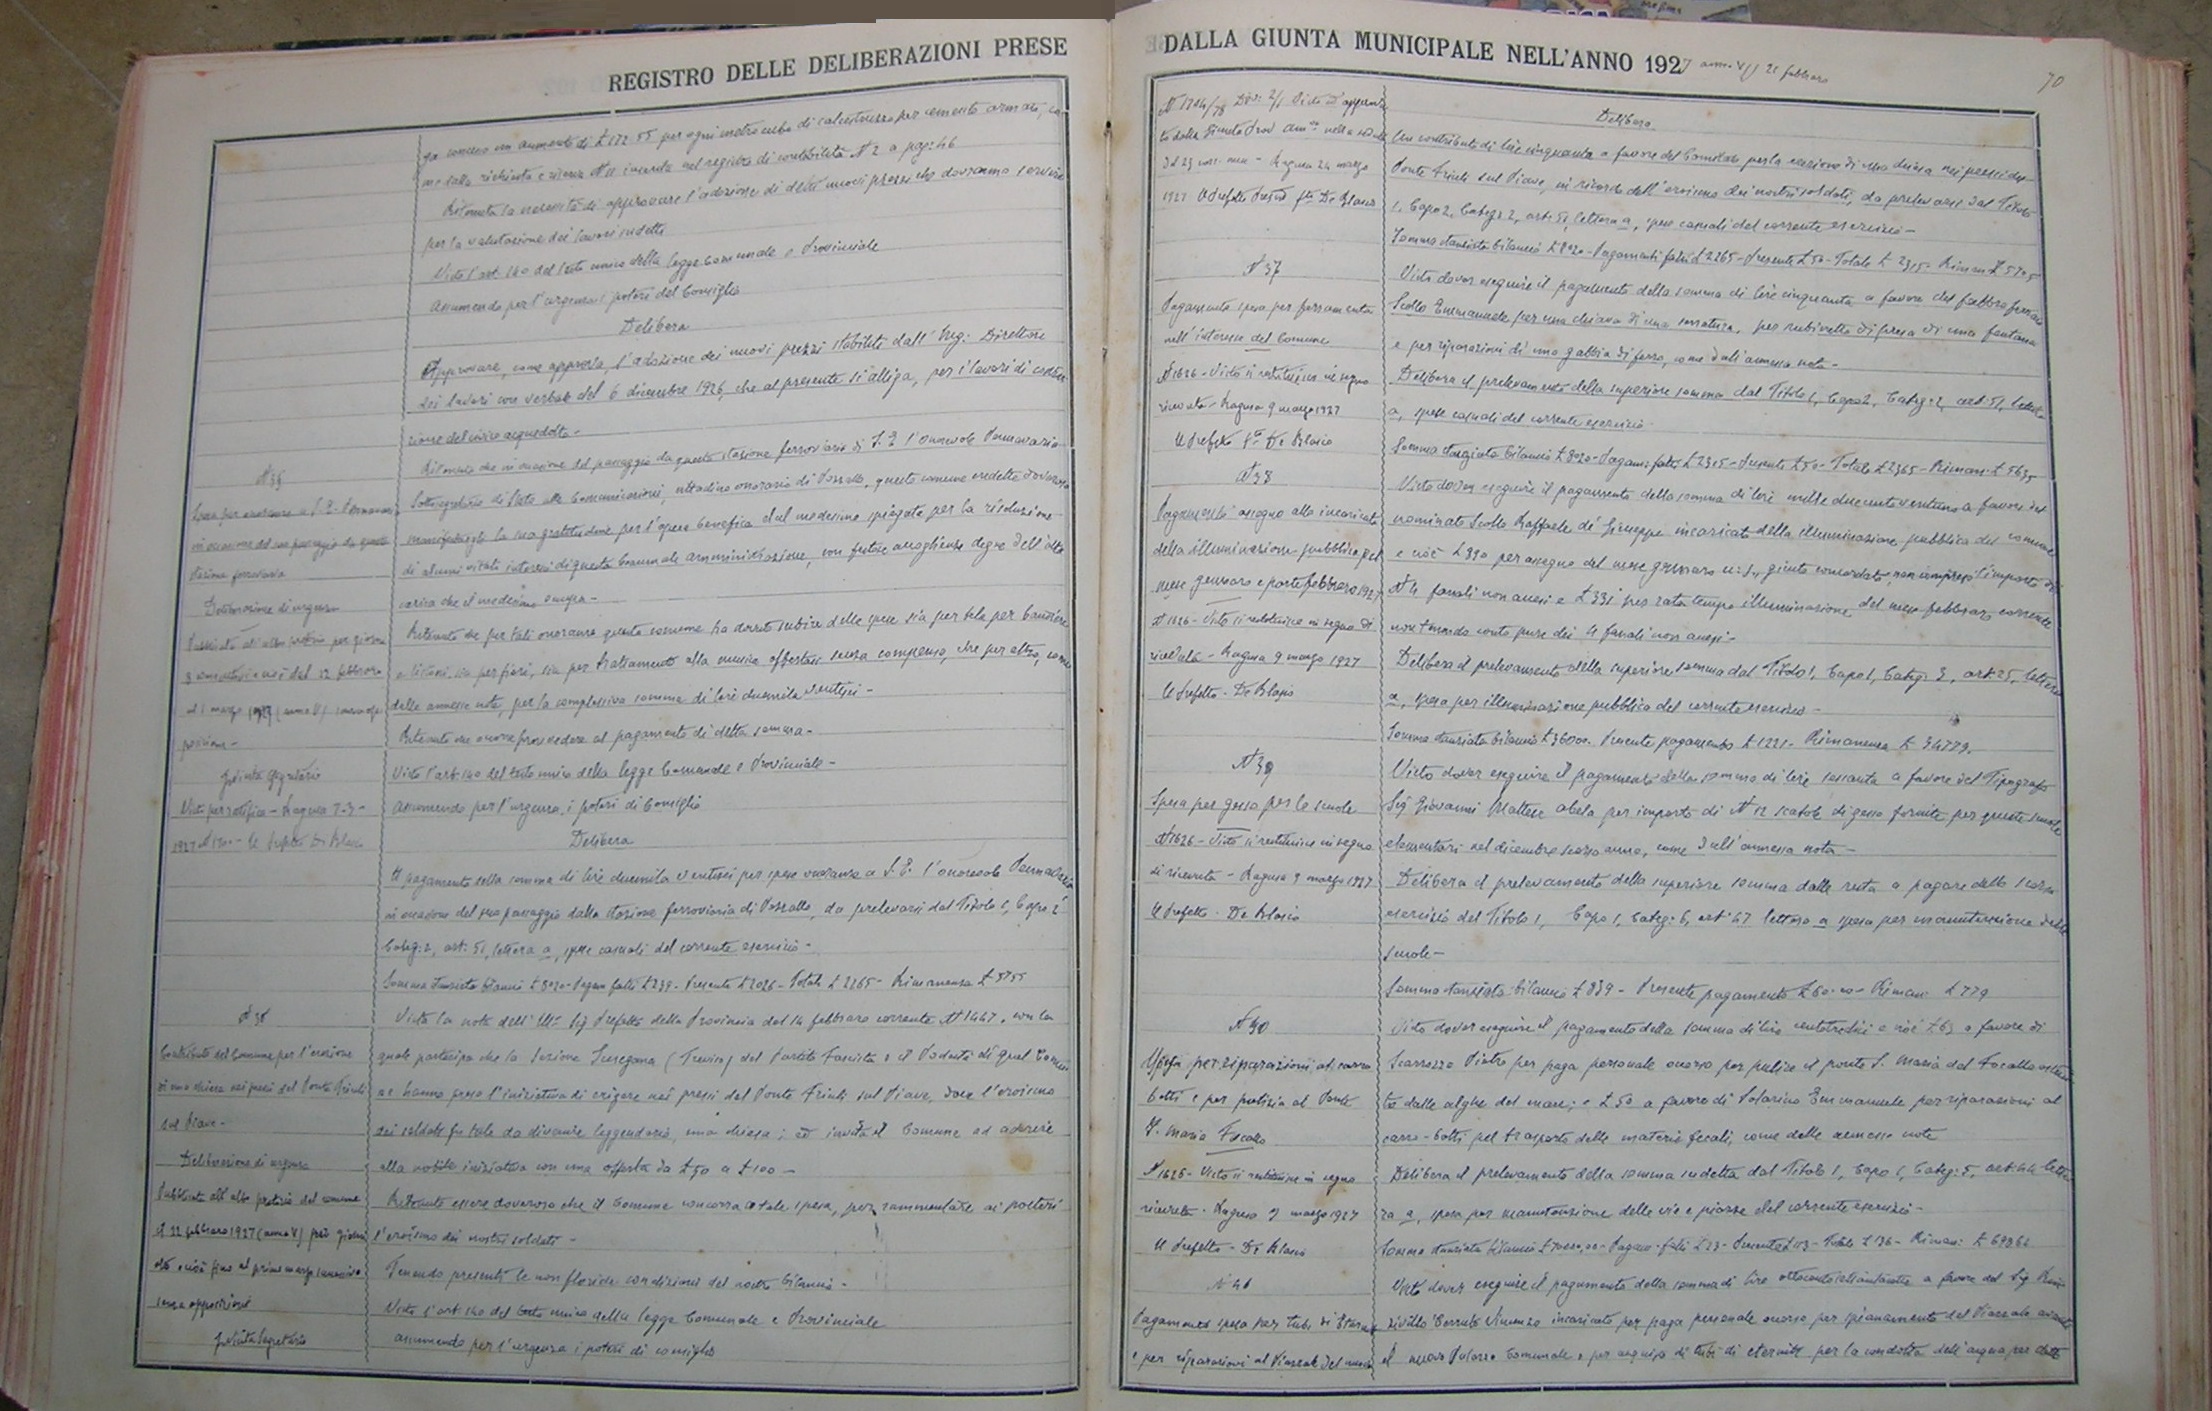 REGISTRO DELLE DELIBERAZIONI PRESE
ga concesso un aumento di £ 172.55 per ogni metro cubo di calcestruzzo per cemento armato,
me dalla richiesta e riserva N 11 inserita nel registro di contabilità N 2 a pag: 46
Ritenuta la necessità di approvare l'adozione di detti nuovi prezzi che dovranno servire
per la valutazione dei lavori sudetti
Visto l'art. 140 del testo unico della legge Comunale e Provinciale
Assumendo per l'urgenza i poteri del Consiglio
Delibera
Approvare, come approva, l'adozione dei nuovi prezzi stabiliti dall'Ing: Direttore
dei lavori con verbale del 6 dicembre 1926, che al presente si alliga, per i lavori di costru
zione del civico acquedotto.
N 35
Spesa per onoranze a S. E. Pennavaria
in occasione del suo passaggio da questa
stazione ferroviaria
Deliberazione di urgenza
Pubblicata all'albo pretorio per giorni
8 consecutivi e cioè dal 22 febbraio
al 1 marzo 1927 (anno V) senza op
posizione -
Il Segretario
Visto per ratifica - Ragusa 7-3-
1927 Il Prefetto De Blasio
Ritenuto che in occasione del passaggio da questa stazione ferroviaria di S. E. l'Onorevole Pennavaria
Sottosegretario di Stato alle Comunicazioni, cittadino onorario di Pozzallo, questo comune credette doveroso
manifestargli la sua gratitudine per l'opera benefica dal medesimo spiegata per la risoluzione
di alcuni vitali interessi di questa Comunale amministrazione, con festose accoglienze degne dell'alta
carica che il medesimo occupa -
Ritenuto che per tali onoranze questo comune ha dovuto subire delle spese sia per tela per bandiere
e festoni, sia per fiori, sia per trattamento alla musica offertasi senza compenso, che per altro, come
dalle annesse note, per la complessiva somma di lire duemila ventisei -
Ritenuto che occorre provvedere al pagamento di detta somma -
Visto l'art 140 del testo unico della legge Comunale e Provinciale -
Assumendo per l'urgenza i poteri di Consiglio
Delibera
Il pagamento della somma di lire duemila ventisei per spese onoranze a S. E. l'onorevole Pennavaria
in occasione del suo passaggio dalla stazione ferroviaria di Pozzallo, da prelevarsi dal Titolo I, Capo 2
Categ: 2, art: 51, lettera a, spese casuali del corrente esercizio -
Somma stanziata bilancio £ 8020 - Pagam fatti £ 239 - Presente £ 2026 - Totale £ 2265 - Rimanenza £ 5755
N 36
Contributo del Comune per l'erezione
di una chiesa nei pressi del Ponte Friuli
sul Piave -
Deliberazione di urgenza
Pubblicata all'albo pretorio del comune
il 22 febbraio 1927 (anno V) per giorni
otto e cioè fino al primo marzo successivo
senza opposizioni
Il Segretario
Vista la nota dell'Ill.mo Sig Prefetto della Provincia del 14 febbraro corrente N 1447, con la
quale partecipa che la Sezione Susegana (Treviso) del Partito Fascista e il Podestà di quel Comu
ne hanno preso l'iniziativa di erigere nei pressi del Ponte Friuli sul Piave, dove l'eroismo
dei soldati fu tale da divenire leggendario, una chiesa; ed invita il Comune ad aderire
alla nobile iniziativa con una offerta da £ 50 a £ 100 -
Ritenuto essere doveroso che il Comune concorra a tale spesa, per rammentare ai posteri
l'eroismo dei nostri soldati -
Tenendo presenti le non floride condizioni del nostro bilancio -
Visto l'art 140 del testo unico della legge Comunale e Provinciale
assumendo per l'urgenza i poteri di consiglio
DALLA GIUNTA MUNICIPALE NELL'ANNO 1927 anno V 21 febbraio
70
N 1704/78 Div: 2/1 Visto d'approva
to dalla Giunta Prov Amm nella seduta
del 23 corr. mese - Ragusa 24 marzo
1927 Il Prefetto Presid fto De Blasio
Delibera
Un contributo di lire cinquanta a favore del Comitato per la erezione di una chiesa nei pressi del
Ponte Friuli sul Piave, in ricordo dell'eroismo dei nostri soldati, da prelevarsi dal Titolo
1, Capo 2, Categ: 2, art: 51, lettera a, spese casuali del corrente esercizio -
Somma stanziata bilancio £ 8020 - Pagamenti fatti £ 2265 - Presente £ 50 - Totale £ 2315 - Riman £ 5705
N 37
Pagamento spesa per ferramenta
nell'interesse del Comune
N 1626 - Visto si restituisce in segno
ricevuta - Ragusa 9 marzo 1927
Il Prefetto fto De Blasio
Visto dover eseguire il pagamento della somma di lire cinquanta a favore del fabbro ferraio
Scollo Emmanuele per una chiave di una serratura, per rubinetto di presa di una fontana
e per riparazioni di una gabbia di ferro, come dall'annessa nota -
Delibera il prelevamento della superiore somma dal Titolo 1, Capo 2, Categ: 2, art. 51, lettera
a, spese casuali del corrente esercizio -
Somma stanziata bilancio £ 8020 - Pagam: fatti £ 2315 - Presente £ 50 - Totale £ 2365 - Riman: £ 5655
N 38
Pagamento assegno allo incaricato
della illuminazione pubblica pel
mese gennaro e parte febbraro 1927
N 1626 - Visto si restituisce in segno di
ricevuta - Ragusa 9 marzo 1927
Il Prefetto - De Blasio
Visto dover eseguire il pagamento della somma di lire mille duecentoventuno a favore del
nominato Scollo Raffaele di Giuseppe incaricato della illuminazione pubblica del comune
e cioè £ 890 per assegno del mese gennaro u: s., giusto concordato, non compreso l'importo di
N 4 fanali non accesi e £ 331 per rata tempo illuminazione del mese febbraro corrente
non tenendo conto pure dei 4 fanali non accesi -
Delibera il prelevamento della superiore somma dal Titolo 1, Capo 1, Categ: 3, art. 25, lettera
a, spesa per illuminazione pubblica del corrente esercizio -
Somma stanziata bilancio £ 36000. Presente pagamento £ 1221 - Rimanenza £ 34779.
N 39
Spesa per gesso per le scuole
N 1626 - Visto si restituisce in segno
di ricevuta - Ragusa 9 marzo 1927
Il Prefetto - De Blasio
Visto dover eseguire il pagamento della somma di lire sessanta a favore del Tipografo
Sig Giovanni Maltese Abela per importo di N 12 scatole di gesso fornite per queste scuole
elementari nel dicembre scorso anno, come dall'annessa nota -
Delibera il prelevamento della superiore somma dalle resta a pagare dello scorso
esercizio del Titolo 1, Capo 1, Categ: 6, art 47 lettera a spesa per manutenzione delle
scuole -
Somma stanziata bilancio £ 839 - Presente pagamento £ 60.00 - Riman: £ 779
N 40
Spesa per riparazioni al carro
botti e per pulizia al Ponte
S. Maria Focallo
N 1626 - Visto si restituisce in segno
ricevuta - Ragusa 9 marzo 1927
Il Prefetto - De Blasio
Visto dover eseguire il pagamento della somma di lire centotredici e cioè £ 63 a favore di
Scarrozza Pietro per paga personale occorso per pulire il ponte S. Maria del Focallo ostrui
to dalle alghe del mare; e £ 50 a favore di Solarino Emmanuele per riparazioni al
carro-botti pel trasporto delle materie fecali, come delle annesse note
Delibera il prelevamento della somma sudetta dal Titolo 1, Capo 1, Categ: 5, art: 44 lette
ra a, spesa per manutenzione delle vie e piazze del corrente esercizio -
Somma stanziata bilancio £ 7000,00 - Pagam. fatti £ 23 - Presente £ 113 - Totale £ 136 - Riman: £ 6864
N 41
Pagamento spesa per tubi di Eternit
e per riparazioni al Piazzale del nuovo
Visto dover eseguire il pagamento della somma di lire a favore del Sig
Vincenzo incaricato per paga personale occorso per spianamento del Piazzale avanti
il nuovo Palazzo Comunale e per acquisto di tubi di eternit per la condotta dell'acqua per detto